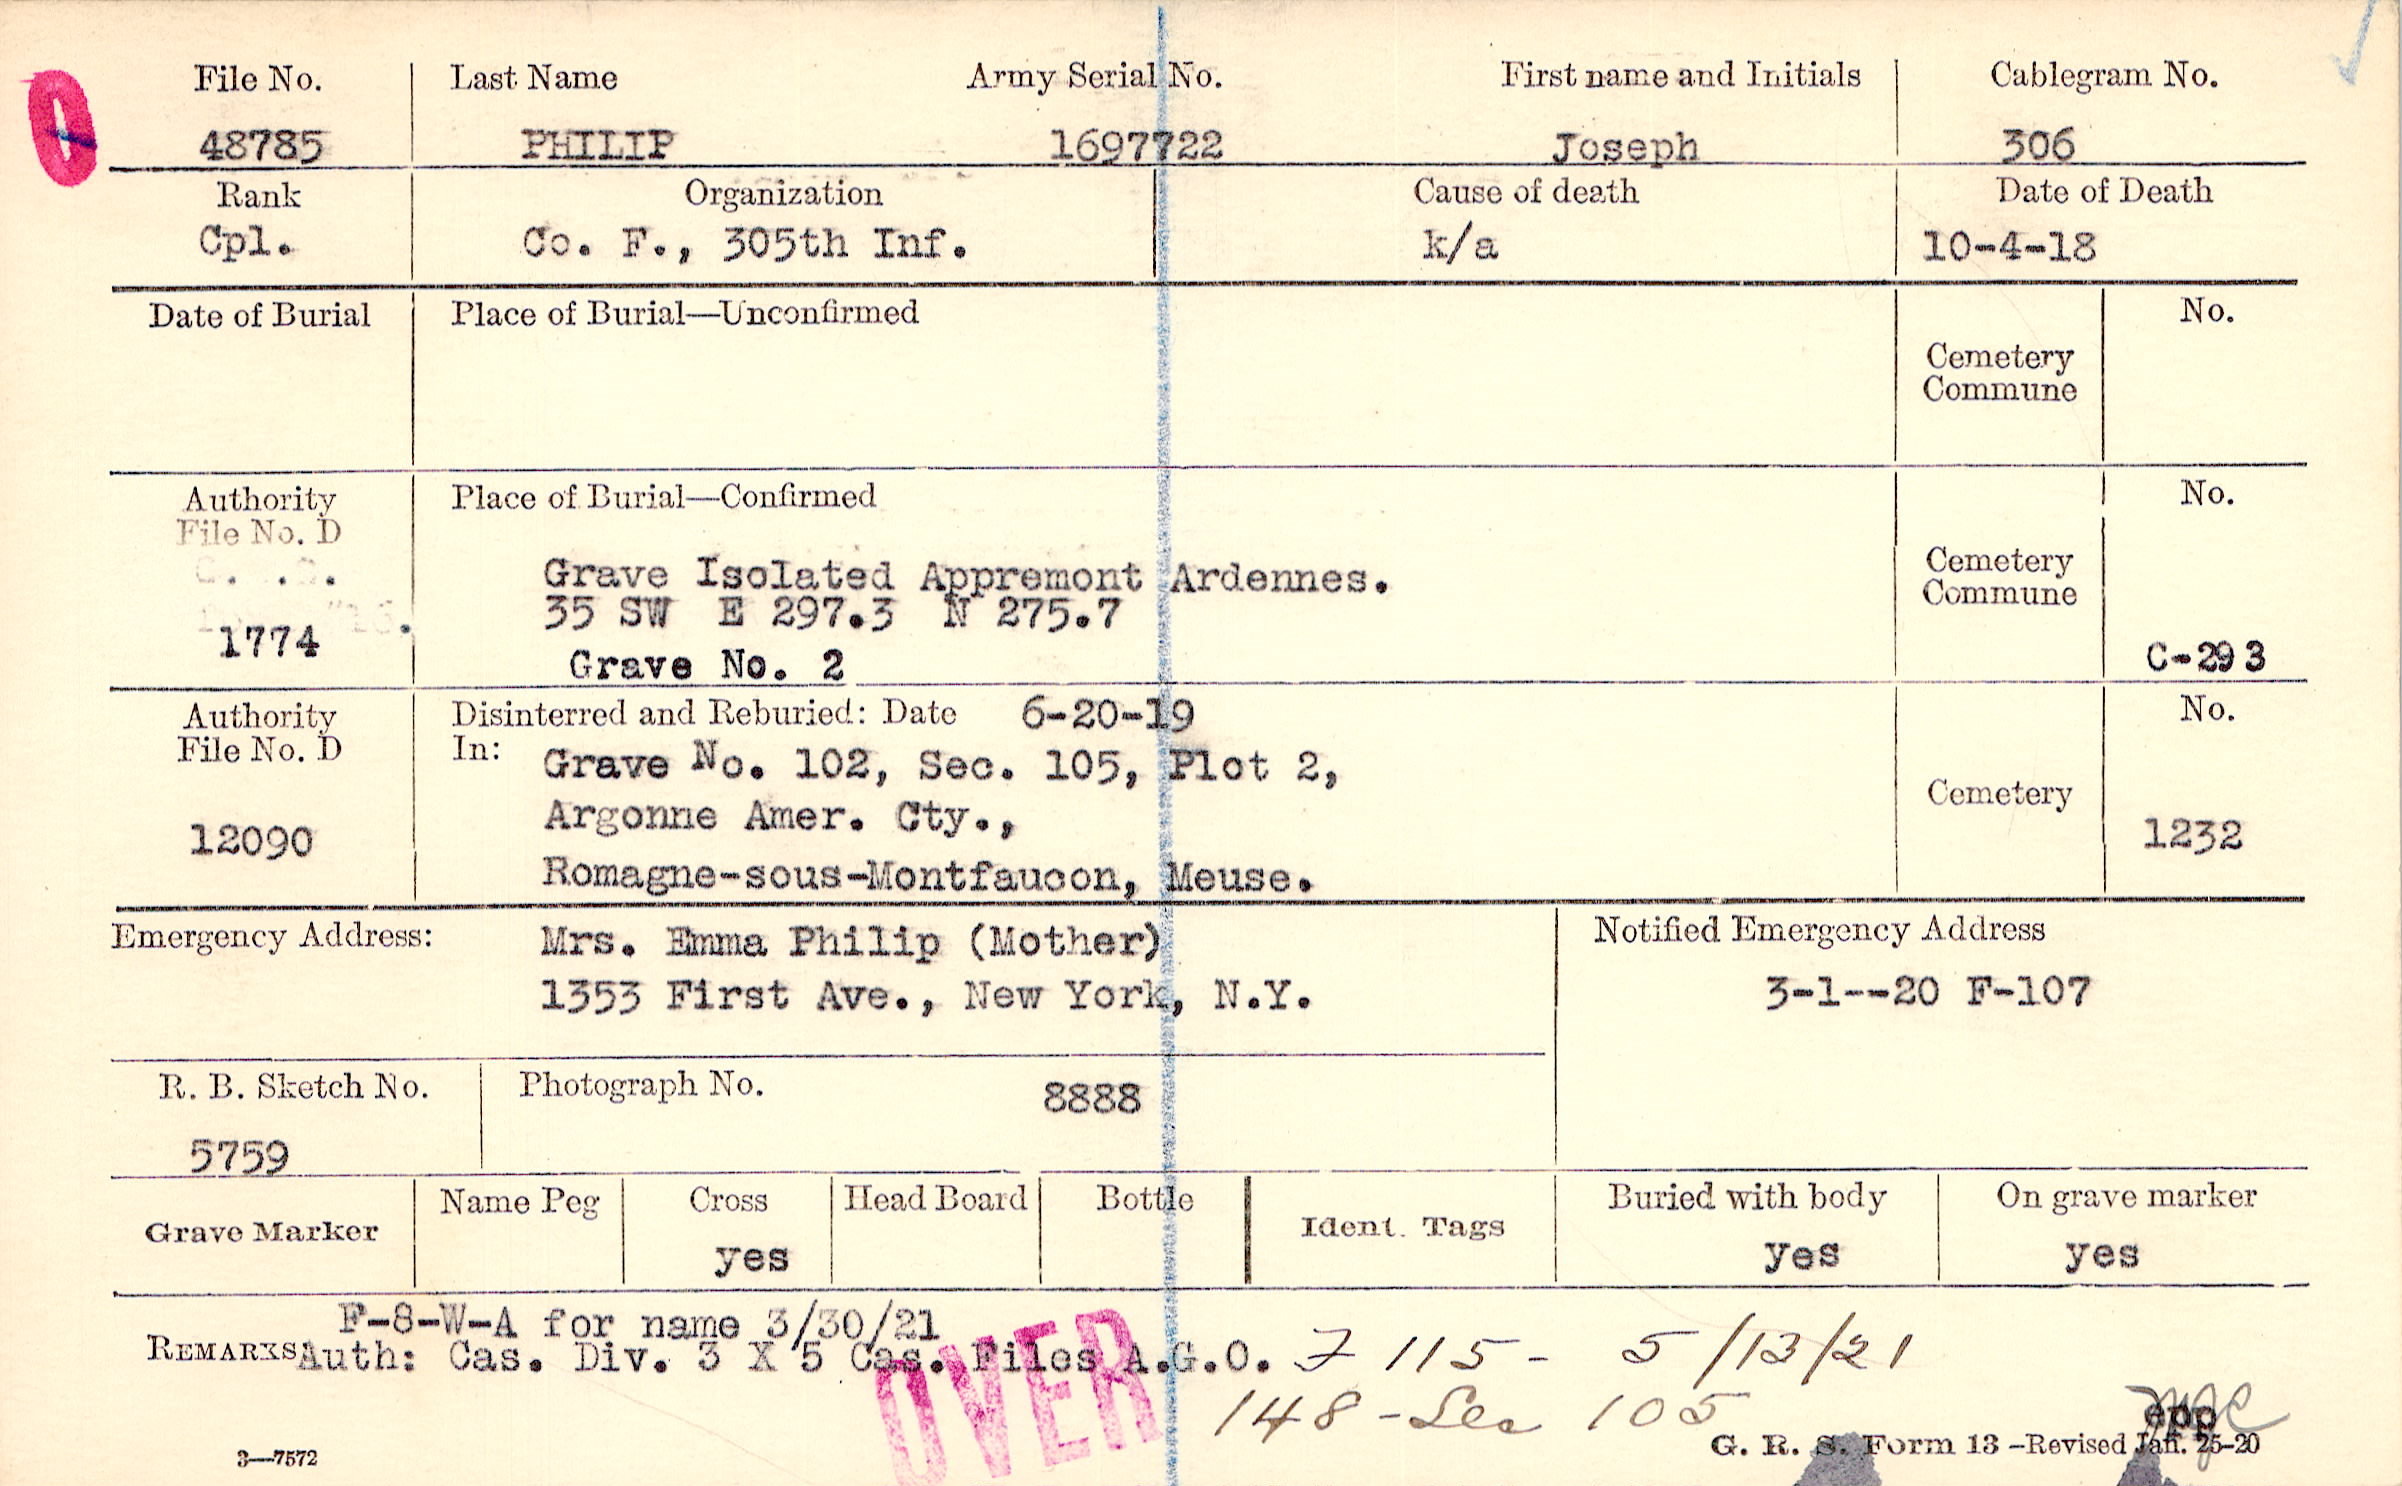 File No. Last Name Army Serial No. First name and Initials Cablegram No.
48785 PHILIP 1697722 Joseph 306
Rank Organization Cause of death Date of Death
Cpl. Co. F., 305th Inf. k/a 10-4-18
Date of Burial Place of Burial—Unconfirmed No.
Cemetery
Commune
Authority Place of Burial—Confirmed No.
File No. D
Grave Isolated Appremont Ardennes. Cemetery
35 SW E 297.3 N 275.7 Commune
1774 Grave No. 2 C-293
Authority Disinterred and Reburied: Date 6-20-19 No.
File No. D In: Grave No. 102, Sec. 105, Plot 2,
Argonne Amer. Cty., Cemetery
12090 1232
Romagne-sous-Montfaucon, Meuse.
Emergency Address: Mrs. Emma Philip (Mother) Notified Emergency Address
1353 First Ave., New York, N.Y. 3-1--20 F-107
R. B. Sketch No. Photograph No. 8888
5759
Grave Marker Name Peg Cross Head Board Bottle Ident. Tags Buried with body On grave marker
yes yes yes
F-8-W-A for name 3/30/21
REMARKS Auth: Cas. Div. 3 X 5 Cas. Files A.G.O. F 115 - 5/13/21
OVER
148 - Sec 105
epp
3—7572 G. R. S. Form 13 -Revised Jan. 25-20